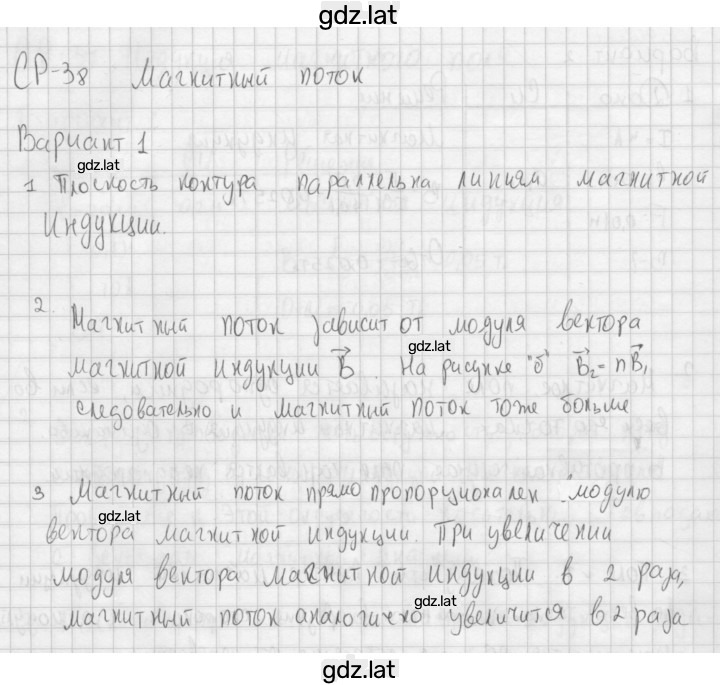 gdz.lat
СР-38 Магнитный поток
Вариант 1
gdz.lat
1 Плоскость контура параллельна линиям магнитной
gdz.lat
индукции.
2. Магнитный поток зависит от модуля вектора
gdz.lat
магнитной индукции B⃗. На рисунке "б" B⃗₂=nB⃗₁
следовательно и магнитный поток тоже больше
gdz.lat
3 Магнитный поток прямо пропорционален модулю
gdz.lat
вектора магнитной индукции. При увеличении
модуля вектора магнитной индукции в 2 раза,
gdz.lat
магнитный поток аналогично увеличится в 2 раза
gdz.lat